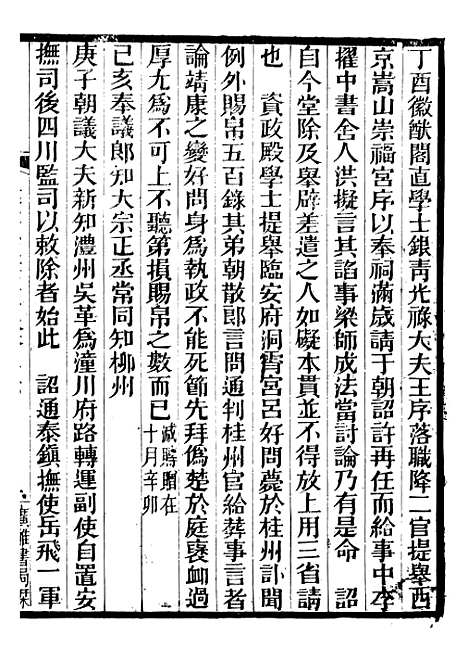 丁酉徽猷閣直學士銀靑光祿大夫王序落職降二官提舉西
京嵩山崇福宮序以奉祠滿歲請于朝詔許再任而給事中李
擢中書舍人洪擬言其諂事梁師成法當討論乃有是命　詔
自今堂除及舉辟差遣之人如礙本貫並不得放上用三省請
也　資政殿學士提舉臨安府洞霄宮呂好問薨於桂州訃聞
例外賜帛五百錄其弟朝散郎言問通判桂州官給葬事言者
論靖康之變好問身爲執政不能死節先拜僞楚於庭襃卹過
厚尤爲不可上不聽第損賜帛之數而已減賻贈在十月辛卯
己亥奉議郎知大宗正丞常同知柳州
庚子朝議大夫新知澧州吳革爲潼川府路轉運副使自置安
撫司後四川監司以敕除者始此　詔通泰鎮撫使岳飛一軍
廣雅書局栞